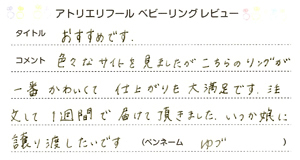 アトリエリフール ベビーリングレビュー
タイトル おすすめです.
コメント 色々なサイトを見ましたがこちらのリングが
一番 かわいくて 仕上がりも大満足です. 注
文して 1週間で届けて頂きました. いつか娘に
譲り渡したいです （ペンネーム ゆづ ）